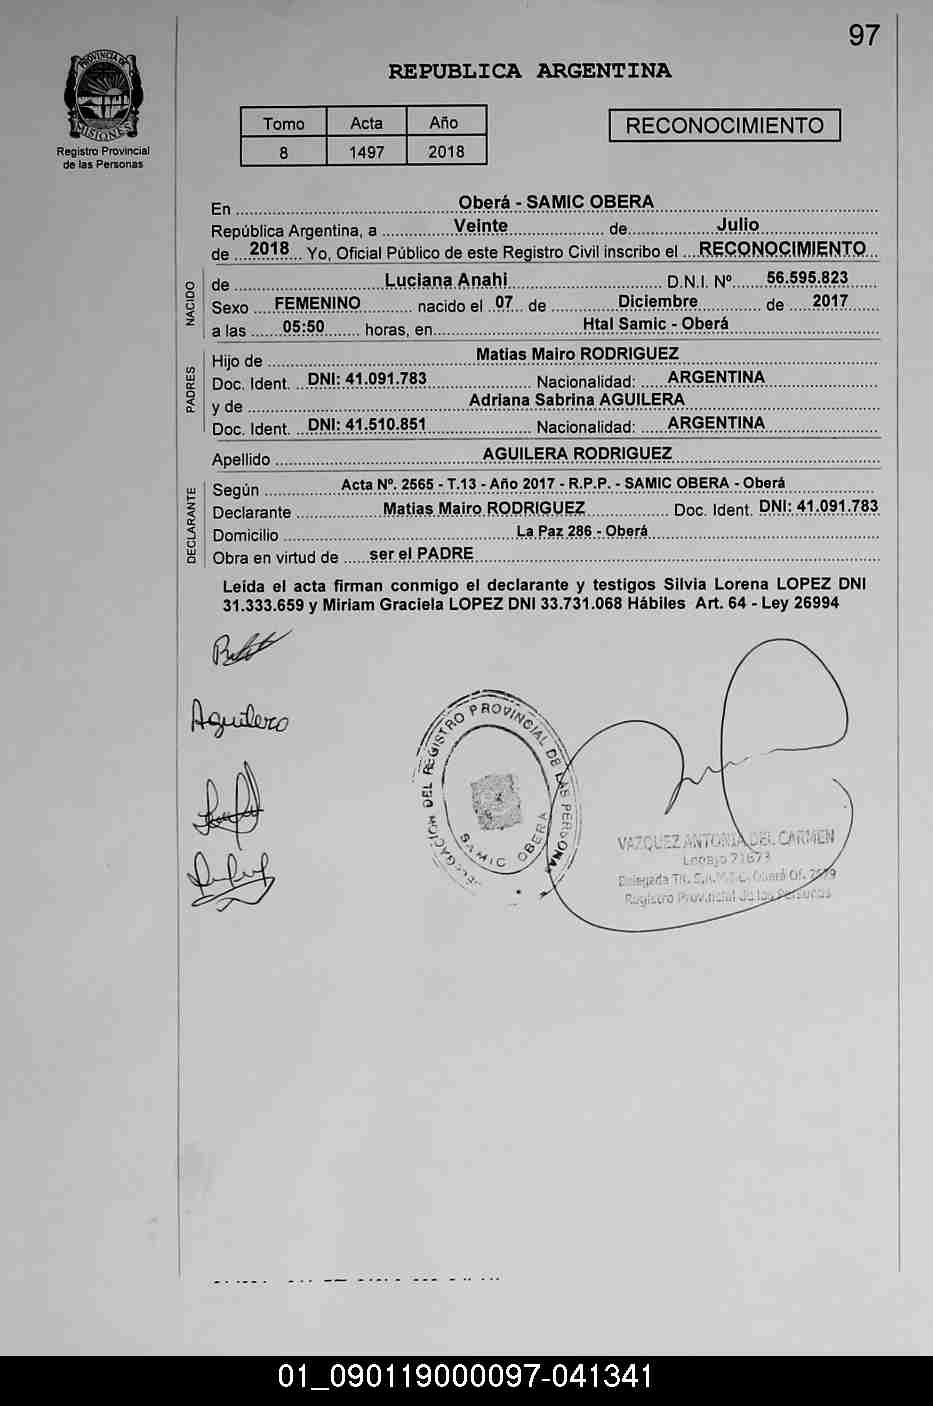 97
PROVINCIA DE
MISIONES
Registro Provincial
de las Personas
REPUBLICA ARGENTINA
Tomo Acta Año
8 1497 2018
RECONOCIMIENTO
En Oberá - SAMIC OBERA
República Argentina, a Veinte de Julio
de 2018 Yo, Oficial Público de este Registro Civil inscribo el RECONOCIMIENTO
NACIDO
de Luciana Anahi D.N.I. Nº 56.595.823
Sexo FEMENINO nacido el 07 de Diciembre de 2017
a las 05:50 horas, en Htal Samic - Oberá
PADRES
Hijo de Matias Mairo RODRIGUEZ
Doc. Ident. DNI: 41.091.783 Nacionalidad: ARGENTINA
y de Adriana Sabrina AGUILERA
Doc. Ident. DNI: 41.510.851 Nacionalidad: ARGENTINA
Apellido AGUILERA RODRIGUEZ
DECLARANTE
Según Acta Nº. 2565 - T.13 - Año 2017 - R.P.P. - SAMIC OBERA - Oberá
Declarante Matias Mairo RODRIGUEZ Doc. Ident. DNI: 41.091.783
Domicilio La Paz 286 - Oberá
Obra en virtud de ser el PADRE
Leída el acta firman conmigo el declarante y testigos Silvia Lorena LOPEZ DNI
31.333.659 y Miriam Graciela LOPEZ DNI 33.731.068 Hábiles Art. 64 - Ley 26994
Aguilera
DEL REGISTRO PROVINCIAL DE LAS PERSONAS
SAMIC OBERA
VAZQUEZ ANTONIA DEL CARMEN
Legajo 71673
Registro Provincial de las Personas
01_090119000097-041341